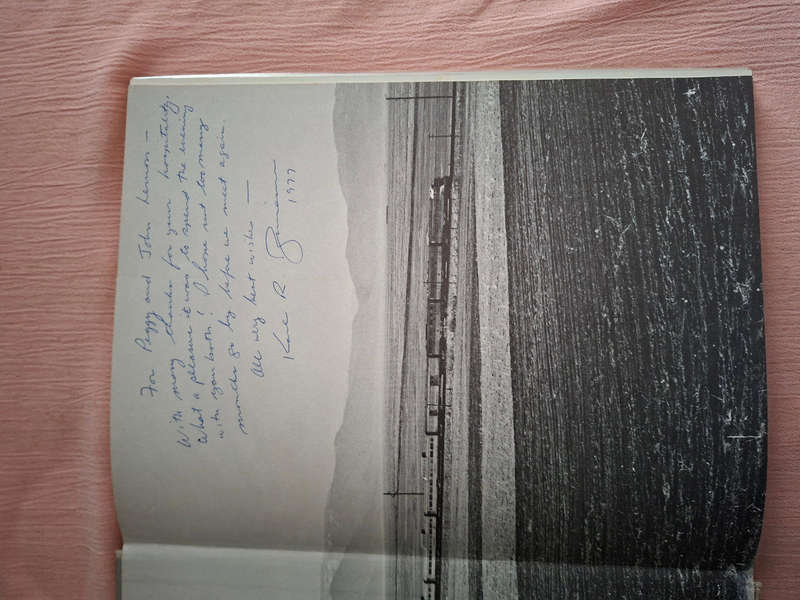 For Peggy and John Lemon —
With many thanks for your hospitality.
What a pleasure it was to spend the evening
with you both! I hope not too many
months go by before we meet again.
All very best wishes —
Karl R.
1977